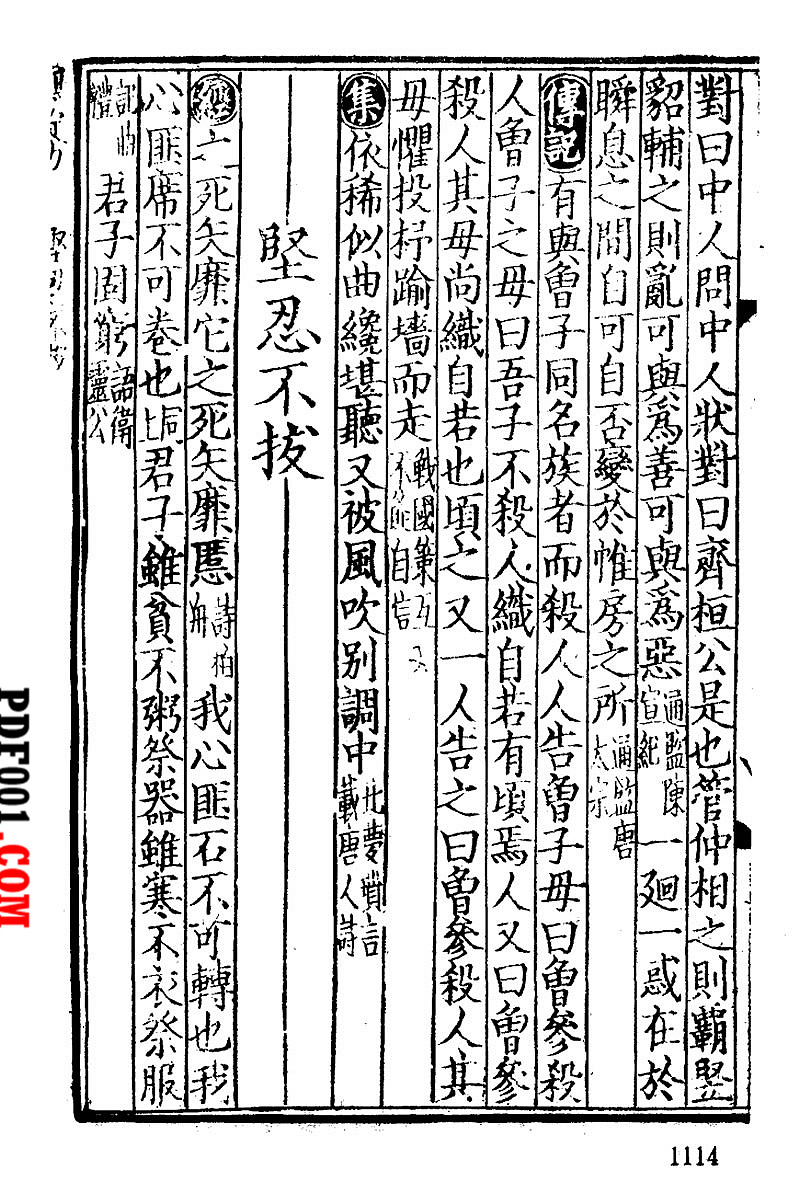 對曰中人問中人狀對曰齊桓公是也管仲相之則霸豎
貂輔之則亂可與爲善可與爲惡通鑑陳宣紀一廻一惑在於
瞬息之間自可自否變於帷房之所通鑑唐太宗
傳記有與魯子同名族者而殺人人告魯子母曰魯參殺
人魯子之母曰吾子不殺人織自若有頃焉人又曰魯參
殺人其母尚織自若也頃之又一人告之曰魯參殺人其
母懼投杼踰墻而走戰國策自信
集依稀似曲纔堪聽又被風吹别調中北夢瑣言載唐人詩
堅忍不拔
經之死矢靡它之死矢靡慝詩柏舟我心匪石不可轉也我
心匪席不可卷也同上君子雖貧不粥祭器雖寒不衣祭服
記曲禮君子固窮語衛靈公
1114
PDF001.COM